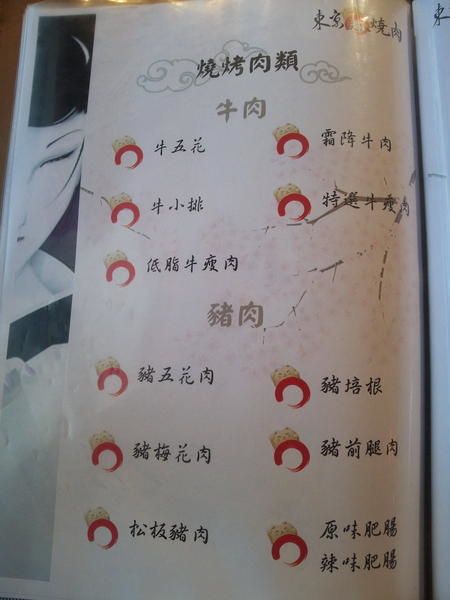 東京燒肉
燒烤肉類
牛肉
牛五花
霜降牛肉
牛小排
特選牛瘦肉
低脂牛瘦肉
豬肉
豬五花肉
豬培根
豬梅花肉
豬前腿肉
松板豬肉
原味肥腸
辣味肥腸
東